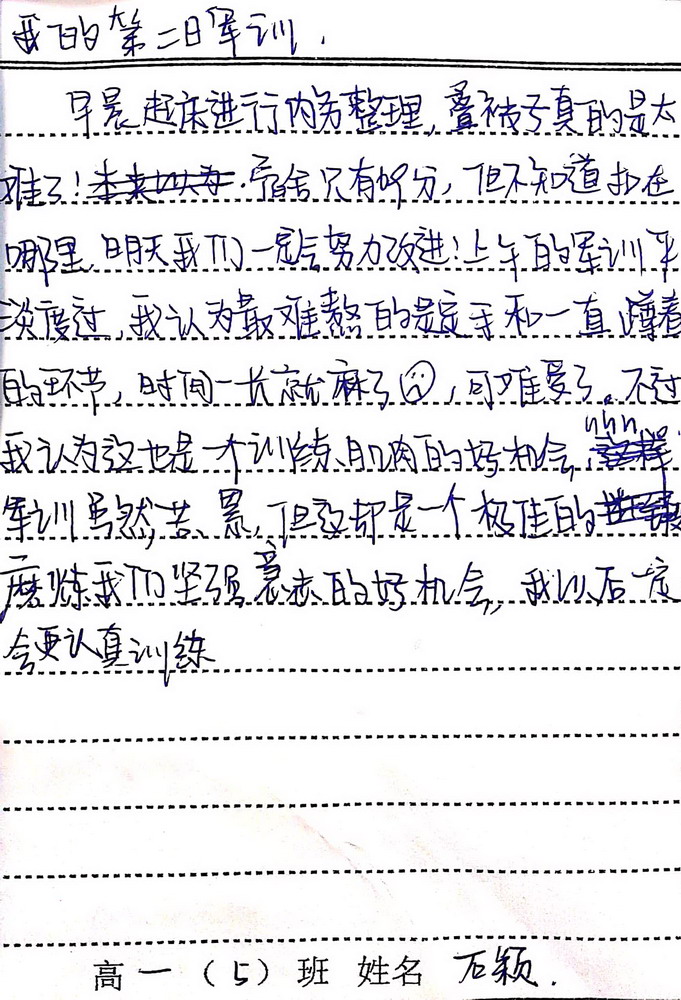 我的第二日军训.
早晨起床进行内务整理,叠被子真的是太
难了!宿舍只有的分,但不知道扣在
哪里,明天我们一定会努力改进!上午的军训平
淡度过,我认为最难熬的是定手和一直蹲着
的环节,时间一长就麻了,可难受了。不过
我认为这也是一个训练肌肉的好机会,
军训虽然苦、累,但这却是一个极佳的
磨炼我们坚强意志的好机会,我以后一定
会更认真训练
高一(5)班 姓名 石颖.